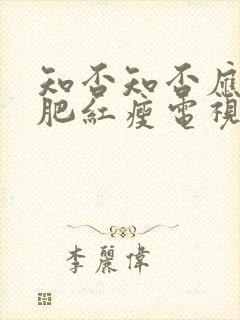 知否知否應
肥紅瘦電視
李麗偉